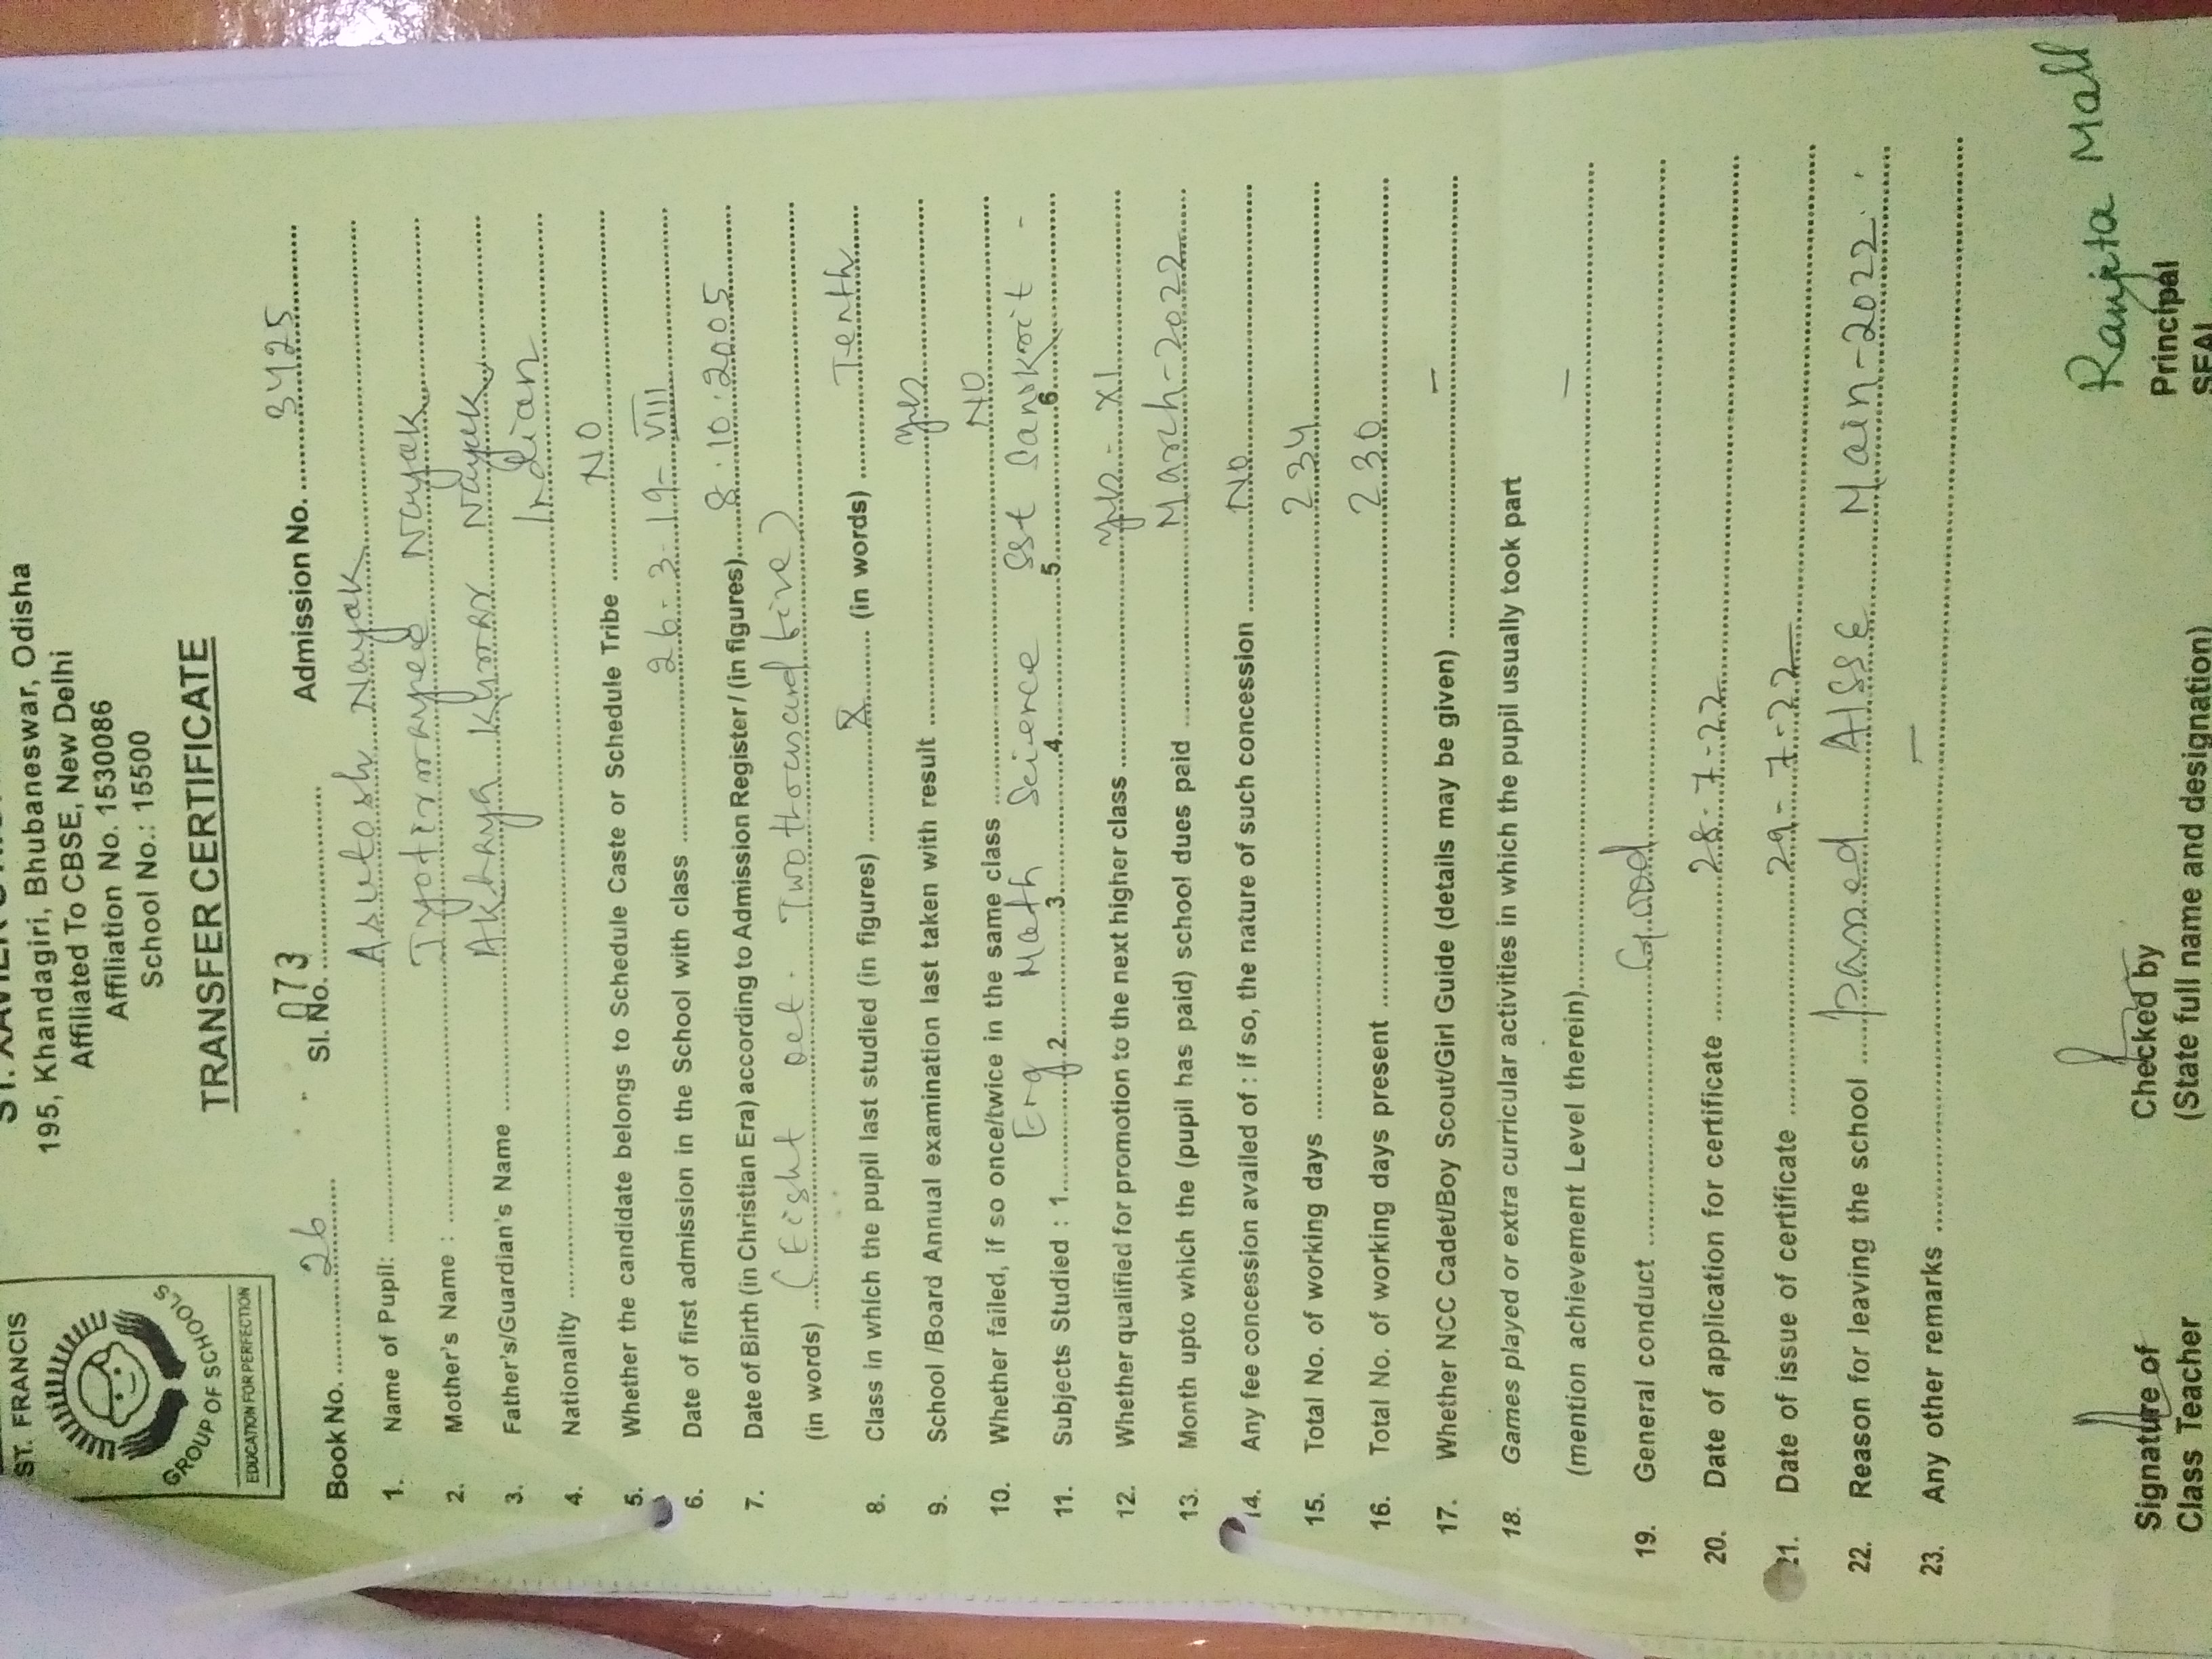 ST. FRANCIS
GROUP OF SCHOOLS
EDUCATION FOR PERFECTION
ST. XAVIER
195, Khandagiri, Bhubaneswar, Odisha
Affiliated To CBSE, New Delhi
Affiliation No. 1530086
School No.: 15500
TRANSFER CERTIFICATE
Book No. 26 Sl. No. 073 Admission No. 3425
1. Name of Pupil: Asutosh Nayak
2. Mother's Name : Jyotirmayee Nayak
3. Father's/Guardian's Name Akhaya Kumar Nayak
4. Nationality Indian
5. Whether the candidate belongs to Schedule Caste or Schedule Tribe NO
6. Date of first admission in the School with class 26-3-19-VIII
7. Date of Birth (in Christian Era) according to Admission Register / (in figures) 8.10.2005
(in words) (Eight oct. Two thousand five)
8. Class in which the pupil last studied (in figures) X (in words) Tenth
9. School /Board Annual examination last taken with result Yes
10. Whether failed, if so once/twice in the same class NO
11. Subjects Studied : 1 Eng 2 Math 3 Science 4 5 SST Sanskrit - 6
12. Whether qualified for promotion to the next higher class Yes - XI
13. Month upto which the (pupil has paid) school dues paid March-2022
14. Any fee concession availed of : if so, the nature of such concession No
15. Total No. of working days 234
16. Total No. of working days present 230
17. Whether NCC Cadet/Boy Scout/Girl Guide (details may be given) -
18. Games played or extra curricular activities in which the pupil usually took part
(mention achievement Level therein) —
19. General conduct Good
20. Date of application for certificate 28-7-22
21. Date of issue of certificate 29-7-22
22. Reason for leaving the school passed AISSE Main-2022.
23. Any other remarks —
Ranjita Mall
Signature of Class Teacher
Checked by
(State full name and designation)
Principal
SEAL